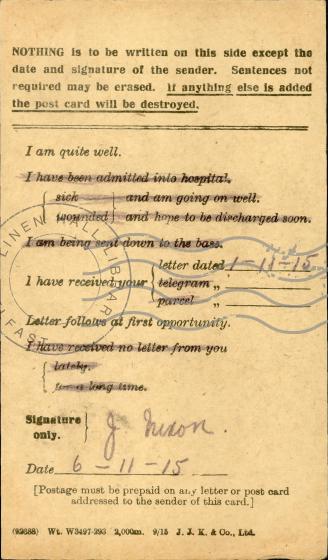 NOTHING is to be written on this side except the
date and signature of the sender. Sentences not
required may be erased. If anything else is added
the post card will be destroyed.
I am quite well.
I have been admitted into hospital.
sick and am going on well.
wounded and hope to be discharged soon.
I am being sent down to the base.
letter dated 1-11-15
I have received your telegram „
parcel „
Letter follows at first opportunity.
I have received no letter from you
lately.
for a long time.
Signature
only.
J. Nixon.
Date 6-11-15
[Postage must be prepaid on any letter or post card
addressed to the sender of this card.]
(92688) Wt. W3497-293 2,000m. 9/15 J. J. K. & Co., Ltd.
LINEN HALL LIBRARY